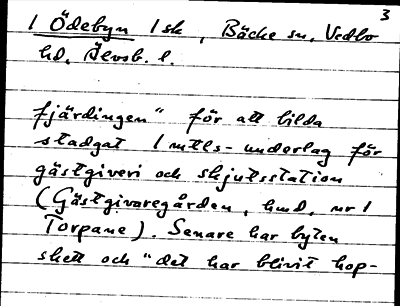 3
1 Ödebyn 1 sk, Bäcke sn, Vedbo
hd, Älvsb. l.
fjärdingen" för att bilda
stadgat 1 mtls-underlag för
gästgiveri och skjutsstation
(Gästgivaregården, hmd, nr 1
Torpane). Senare har byten
skett och "det har blivit hop-